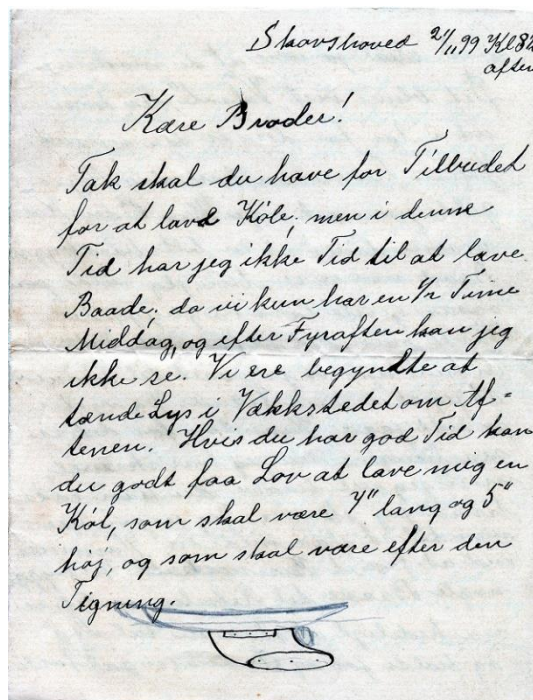 Skovshoved 21/11 99 Kl 8½
aften
Kære Broder!
Tak skal du have for Tilbudet
for at lave Køle, men i denne
Tid har jeg ikke Tid til at lave
Baade, da vi kun har en ½ Time
Middag, og efter Fyraften kan jeg
ikke se. Vi ere begyndte at
tænde Lys i Værkstedet om Af-
tenen. Hvis du har god Tid kan
du godt faa Lov at lave mig en
Køl, som skal være 4" lang og 5"
høj, og som skal være efter den
Tigning.